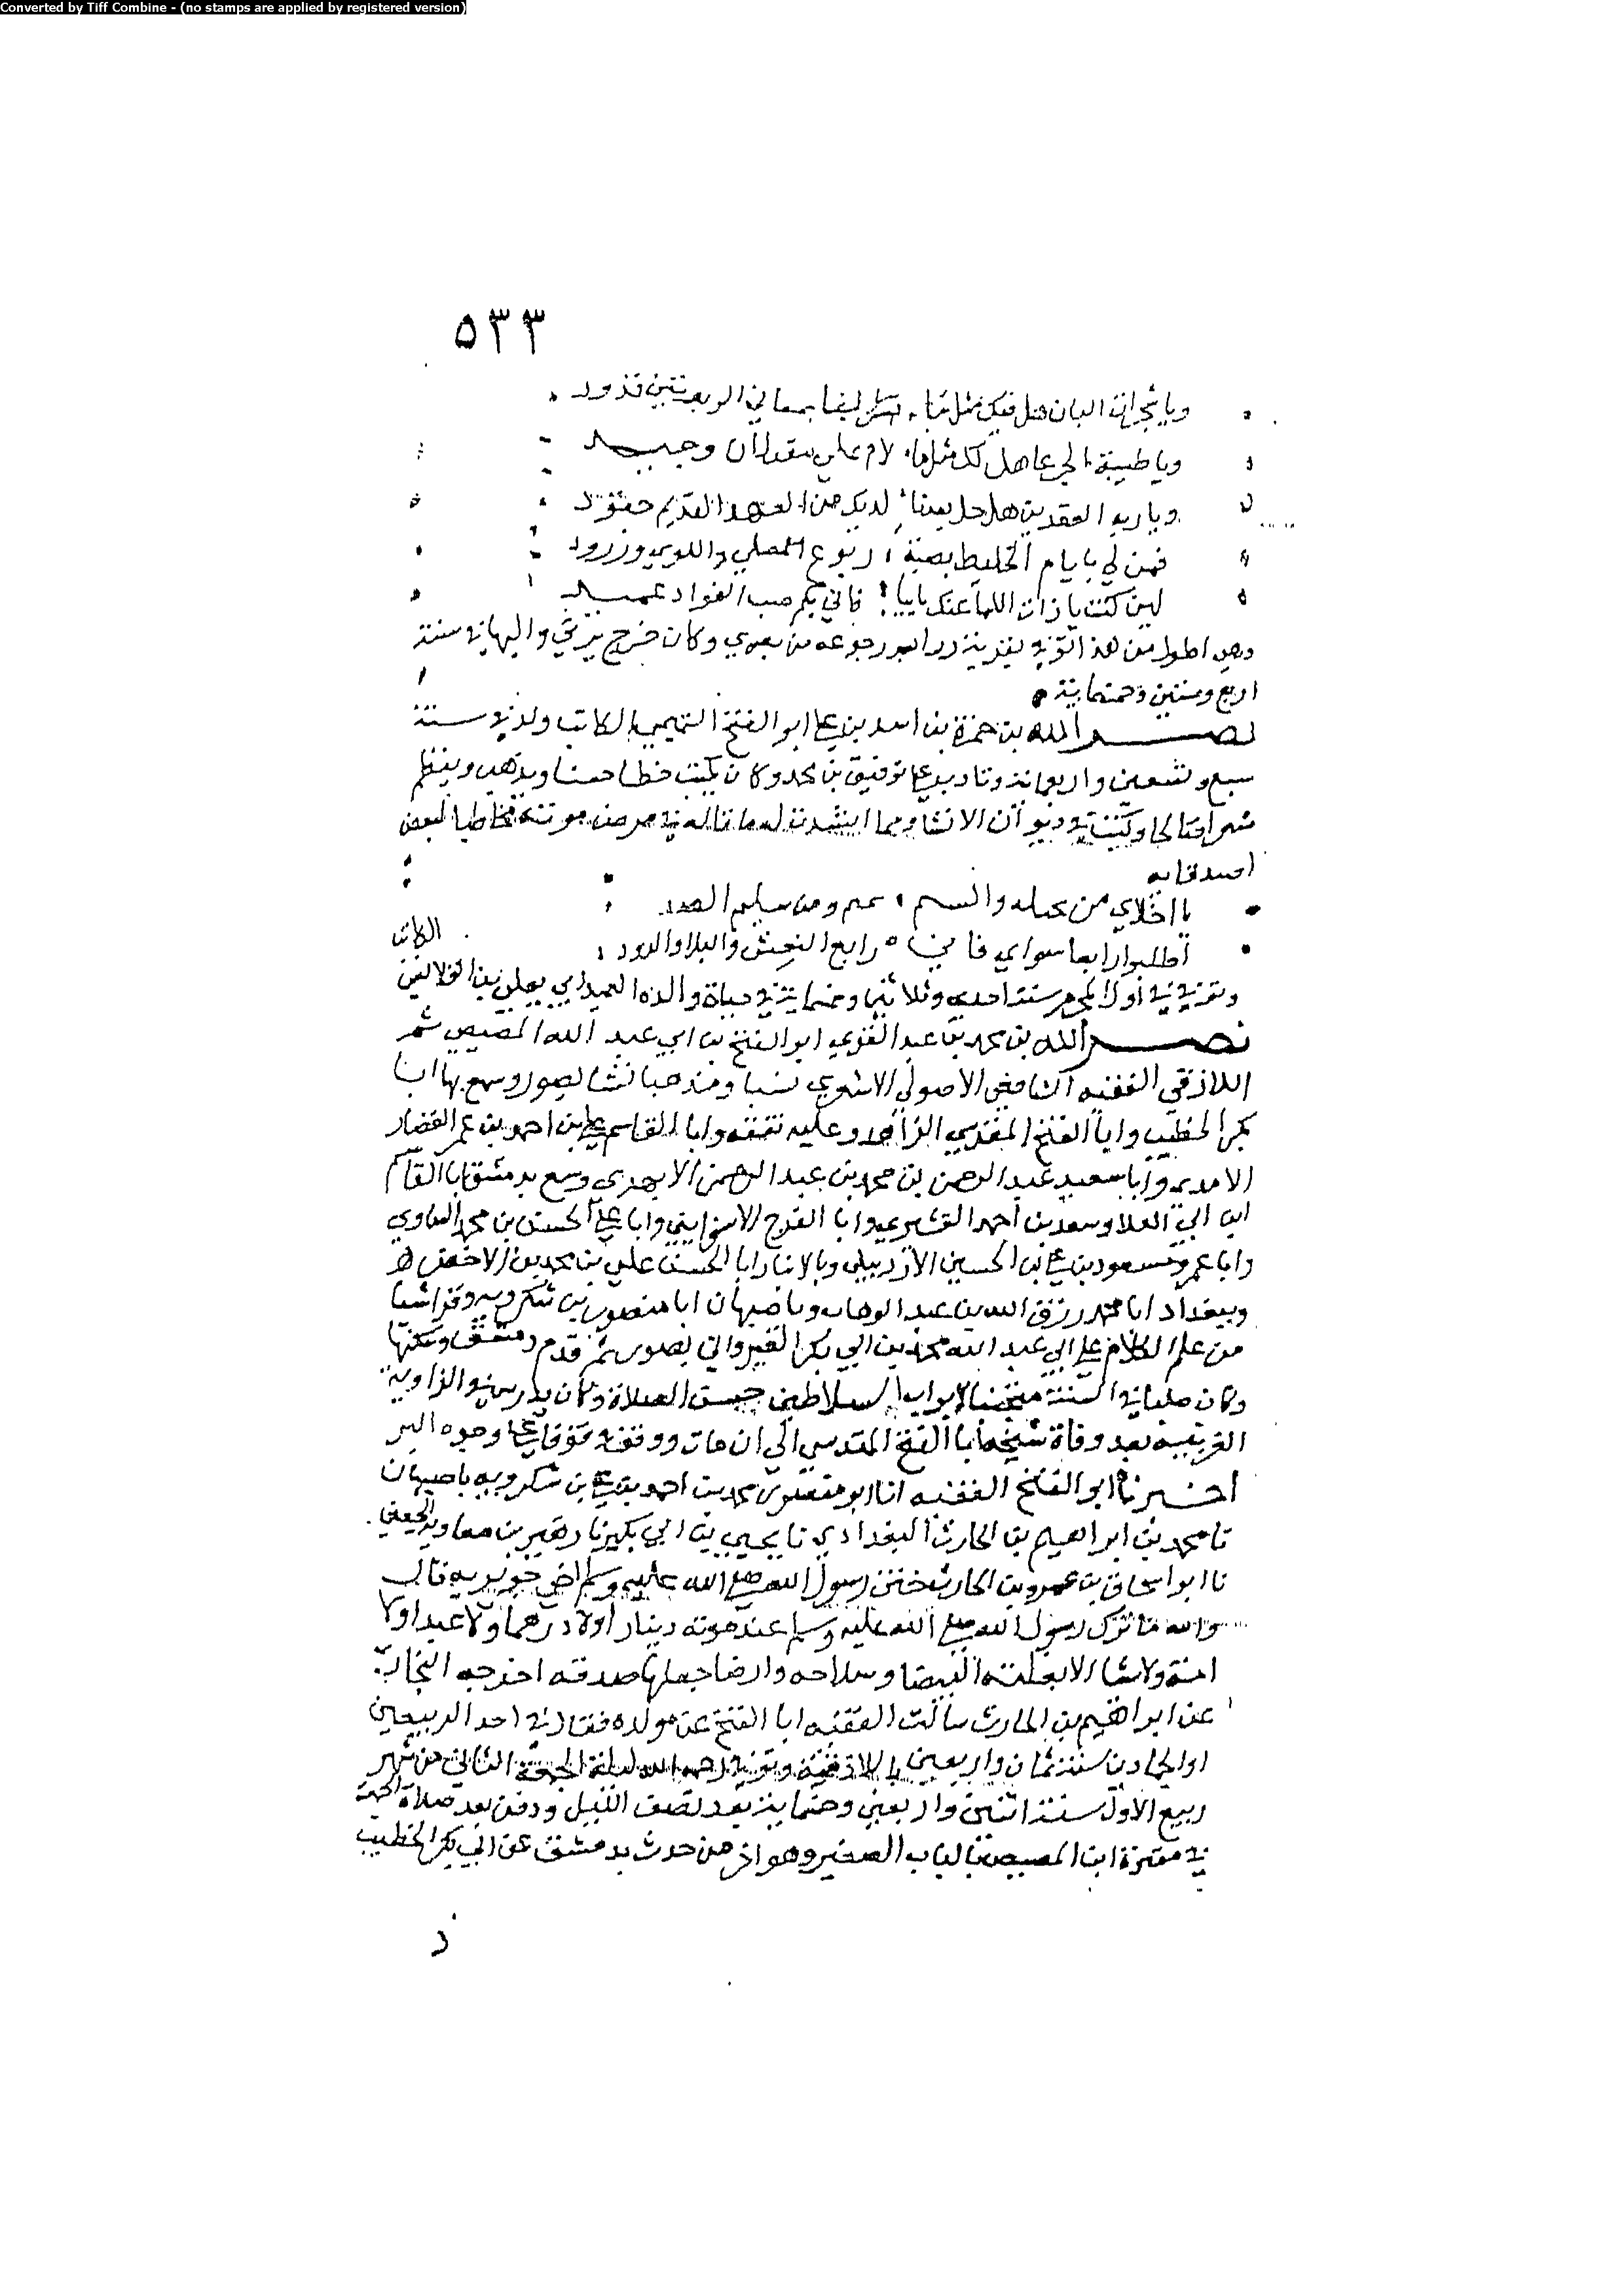 Converted by Tiff Combine - (no stamps are applied by registered version)
٥٣٣
ويا شجرات البان هل فيكن مثل قدود
ويا ظبية الحي هل لك مثلها وجيد
ويا ربة العقدين هل حل بعدنا لديك من العهد القديم عقود
فمن لي بايام الخليط بضبة ربوع المصلي واللوي وزرود
لين كنت يا ذات اللما عنك نايبا فاني بكم صب الفواد عميد
وهي اطول من هذا توفي رجوعه من وكان خرج والبها في سنة
اربع وستين وخمسماية
نصر الله بن حمزة بن اسد بن علي ابو الفتح التميمي الكاتب ولد في سنة
سبع وتسعين واربعماية وتادب علي توفيق بن محمد وكان يكتب خطا حسنا ويذهب وينظم
شعرا صالحا وكتب في ديوان الانشا ومما انشدت له ما قاله في مرض موته مخاطبا لبعض
اصدقايه
يا اخلاي من والنسم ومن سليم الصدر
اطلبوا رابعا سواي فاني رابع النعش والبلا والدود
الكاتب
وتوفي في اول المحرم سنة احدي وثلاثين وخمسماية في حياة والده العميد ابي يعلي بن القلانسي
نصر الله بن محمد بن عبد القوي ابو الفتح بن ابي عبد الله المصيصي ثم
اللاذقي الفقيه الشافعي الاصولي الاشعري نسبا ومذهبا نشا بصور وسمع بها ابا
بكر الخطيب وابا الفتح المقدسي الزاهد وعليه تفقه وابا القاسم علي بن احمد بن عمر القصار
الامدي وابا سعيد عبد الرحمن بن محمد بن عبد الرحمن الابهري وسمع بدمشق ابا القاسم
ابن ابي العلا وسعد بن احمد القشيري وابا الفرج الاسفرايني وابا علي الحسن بن محمد الساوي
وابا عمرو مسعود بن علي بن الحسين الاردبيلي وبالانبار ابا الحسن علي بن محمد بن الاخضر
وببغداد ابا محمد رزق الله بن عبد الوهاب وباصبهان ابا منصور بن شكرويه وقرا شيا
من علم الكلام علي ابي عبد الله محمد بن ابي بكر القيرواني بصور ثم قدم دمشق وسكنها
وكان صلبا في السنة متجنبا لابواب السلاطين حسن الصلاة وكان يدرس في الزاوية
الغربية بعد وفاة شيخه ابا الفتح المقدسي الي ان مات ووقف وقوفا علي وجوه البر
اخبرنا ابو الفتح الفقيه انا ابو منصور محمد بن احمد بن علي بن شكرويه باصبهان
نا محمد بن ابراهيم بن الحارث البغدادي نا يحيي بن ابي بكير نا زهير بن معاوية الجعفي
نا ابو اسحاق بن عمرو بن الحارث ختن رسول الله صلي الله عليه وسلم اخي جويرية قال
والله ما ترك رسول الله صلي الله عليه وسلم عند موته دينار اولا درهما ولا عبدا ولا
امة ولا شيا الا بغلته البيضا وسلاحه وارضا جعلها صدقة اخرجه البخاري
عن ابراهيم بن الحارث سالت الفقيه ابا الفتح عن مولده فقال في احد الربيعين
او الجمادين سنة ثمان واربعين باللاذقية وتوفي رحمه الله ليلة الجمعة الثاني من شهر
ربيع الاول سنة اثنتين واربعين وخمسماية بعد نصف الليل ودفن بعد صلاة الجمعة
في مقبرة ابن المصيصي بالباب الصغير وهو اخر من حدث بدمشق عن ابي بكر الخطيب